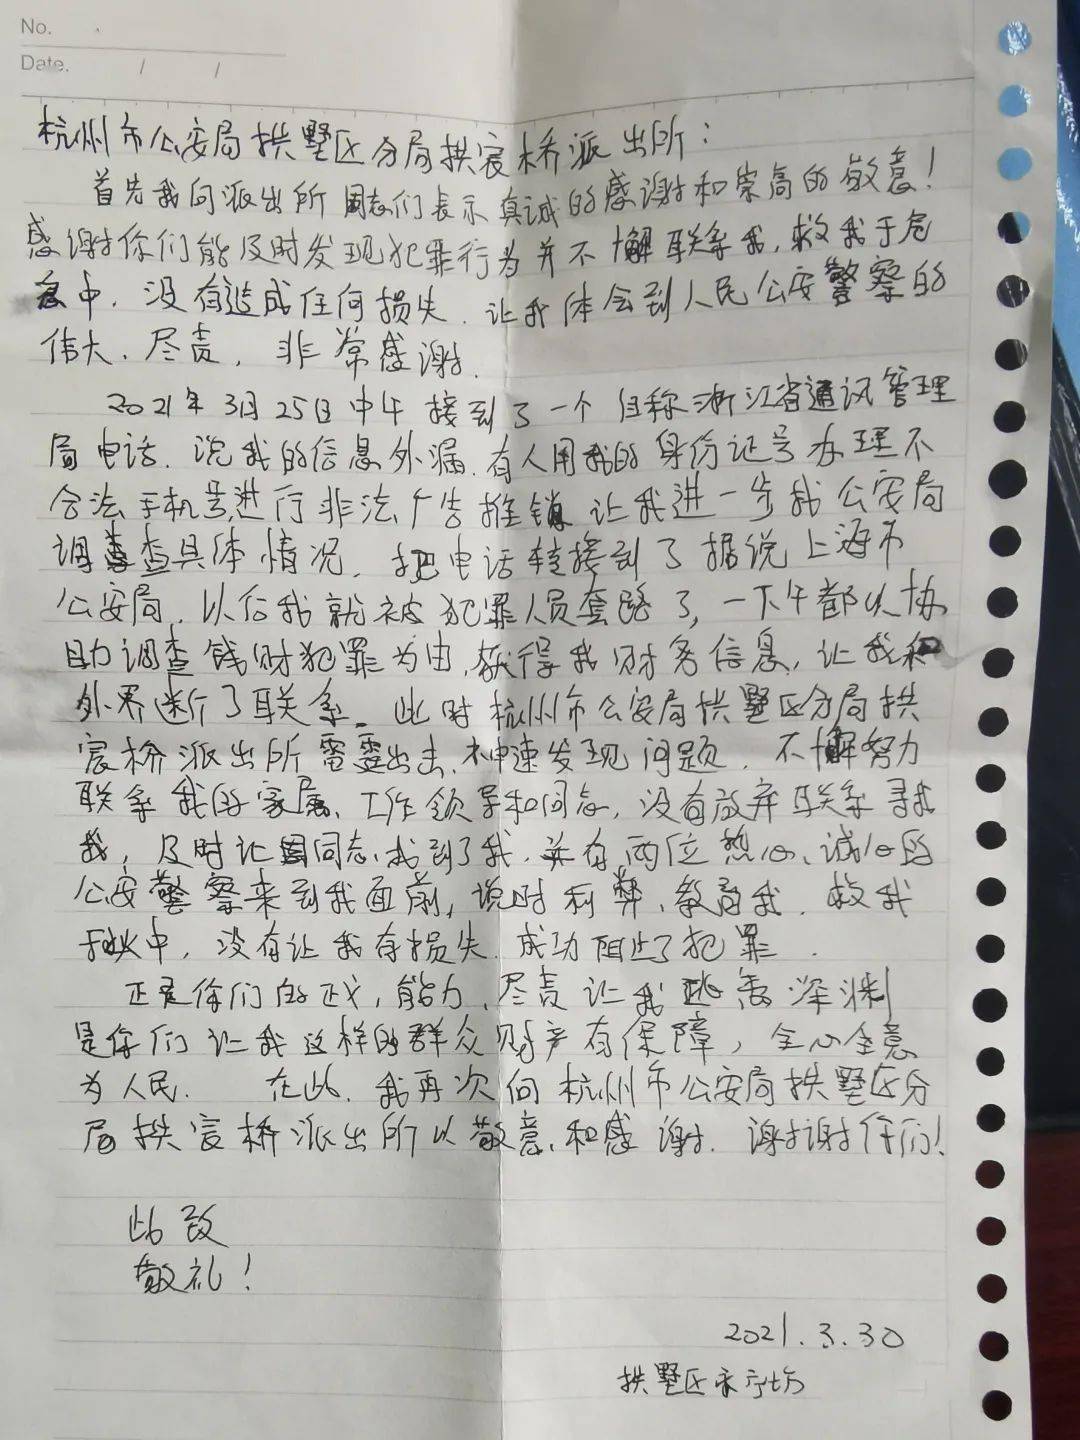 No.
Date. / /
杭州市公安局拱墅区分局拱宸桥派出所：
首先我向派出所同志们表示真诚的感谢和崇高的敬意！
感谢你们能及时发现犯罪行为并不懈联系我，救我于危
急中，没有造成任何损失．让我体会到人民公安警察的
伟大、尽责，非常感谢．
2021年3月25日中午接到了一个自称浙江省通讯管理
局电话．说我的信息外漏．有人用我的身份证号办理不
合法手机号进行非法广告推销．让我进一步找公安局
调查具体情况．把电话转接到了据说上海市
公安局．以后我就被犯罪人员套路了，一下午都以协
助调查钱财犯罪为由，获得我财务信息，让我和
外界断了联系．此时杭州市公安局拱墅区分局拱
宸桥派出所雷霆出击、神速发现问题．不懈努力
联系我的家属、工作领导和同志，没有放弃联系寻找
我，及时让同志找到了我．并有两位热心、诚心的
公安警察来到我面前，说明利弊、教育我．救我
于水火中，没有让我有损失．成功阻止了犯罪．
正是你们的正义，能力、尽责让我逃离深渊
是你们让我这样的群众财产有保障，全心全意
为人民． 在此．我再次向杭州市公安局拱墅区分
局拱宸桥派出所以敬意、和感谢．谢谢你们！
此致
敬礼！
2021.3.30
拱墅区永宁坊